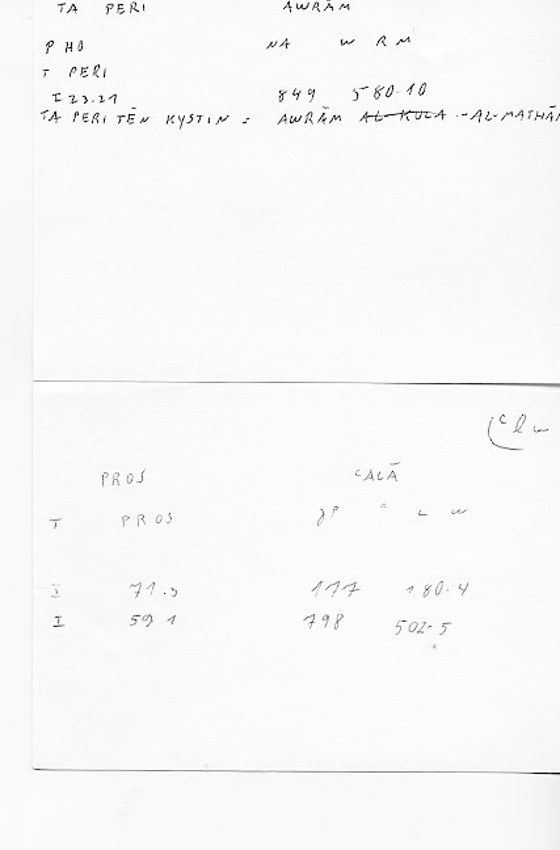 TA PERI AWRĀM
P HO NA W R M
T PERI
I 23.21 849 580.10
TA PERI TĒN KYSTIN : AWRĀM AL-KULA -AL-MATHĀN
ᶜ l w
PROS ᶜALĀ
T PROS JP ᶜ L W
I 71.3 777 180.4
I 59 1 798 502.5